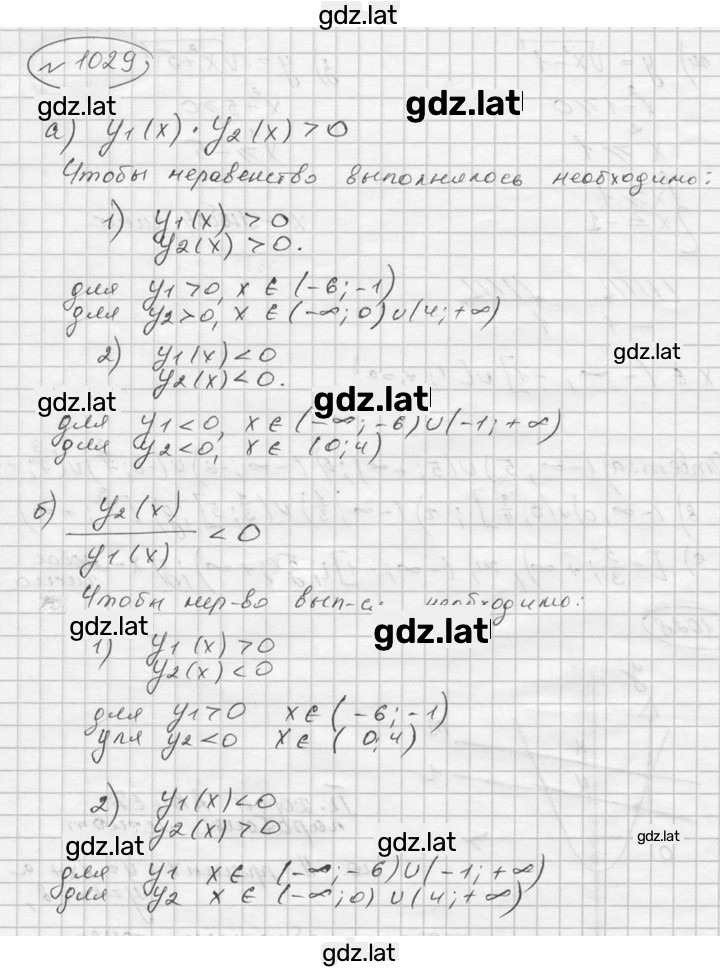 gdz.lat
№ 1029
gdz.lat
gdz.lat
а) y1(x) · y2(x) > 0
Чтобы неравенство выполнялось необходимо:
1) y1(x) > 0
y2(x) > 0.
для y1>0, x ∈ (-6; -1)
для y2>0, x ∈ (-∞; 0) ∪ (4; +∞)
2) y1(x) < 0
gdz.lat
y2(x) < 0.
gdz.lat
gdz.lat
для y1<0, x ∈ (-∞; -6) ∪ (-1; +∞)
для y2<0, x ∈ (0; 4)
б) y2(x)
/ y1(x) < 0
Чтобы нер-во вып-сь необходимо:
gdz.lat
gdz.lat
1) y1(x) > 0
y2(x) < 0
для y1>0 x ∈ (-6; -1)
для y2<0 x ∈ (0; 4)
2) y1(x) < 0
y2(x) > 0
gdz.lat
gdz.lat
gdz.lat
для y1 x ∈ (-∞; -6) ∪ (-1; +∞)
для y2 x ∈ (-∞; 0) ∪ (4; +∞)
gdz.lat